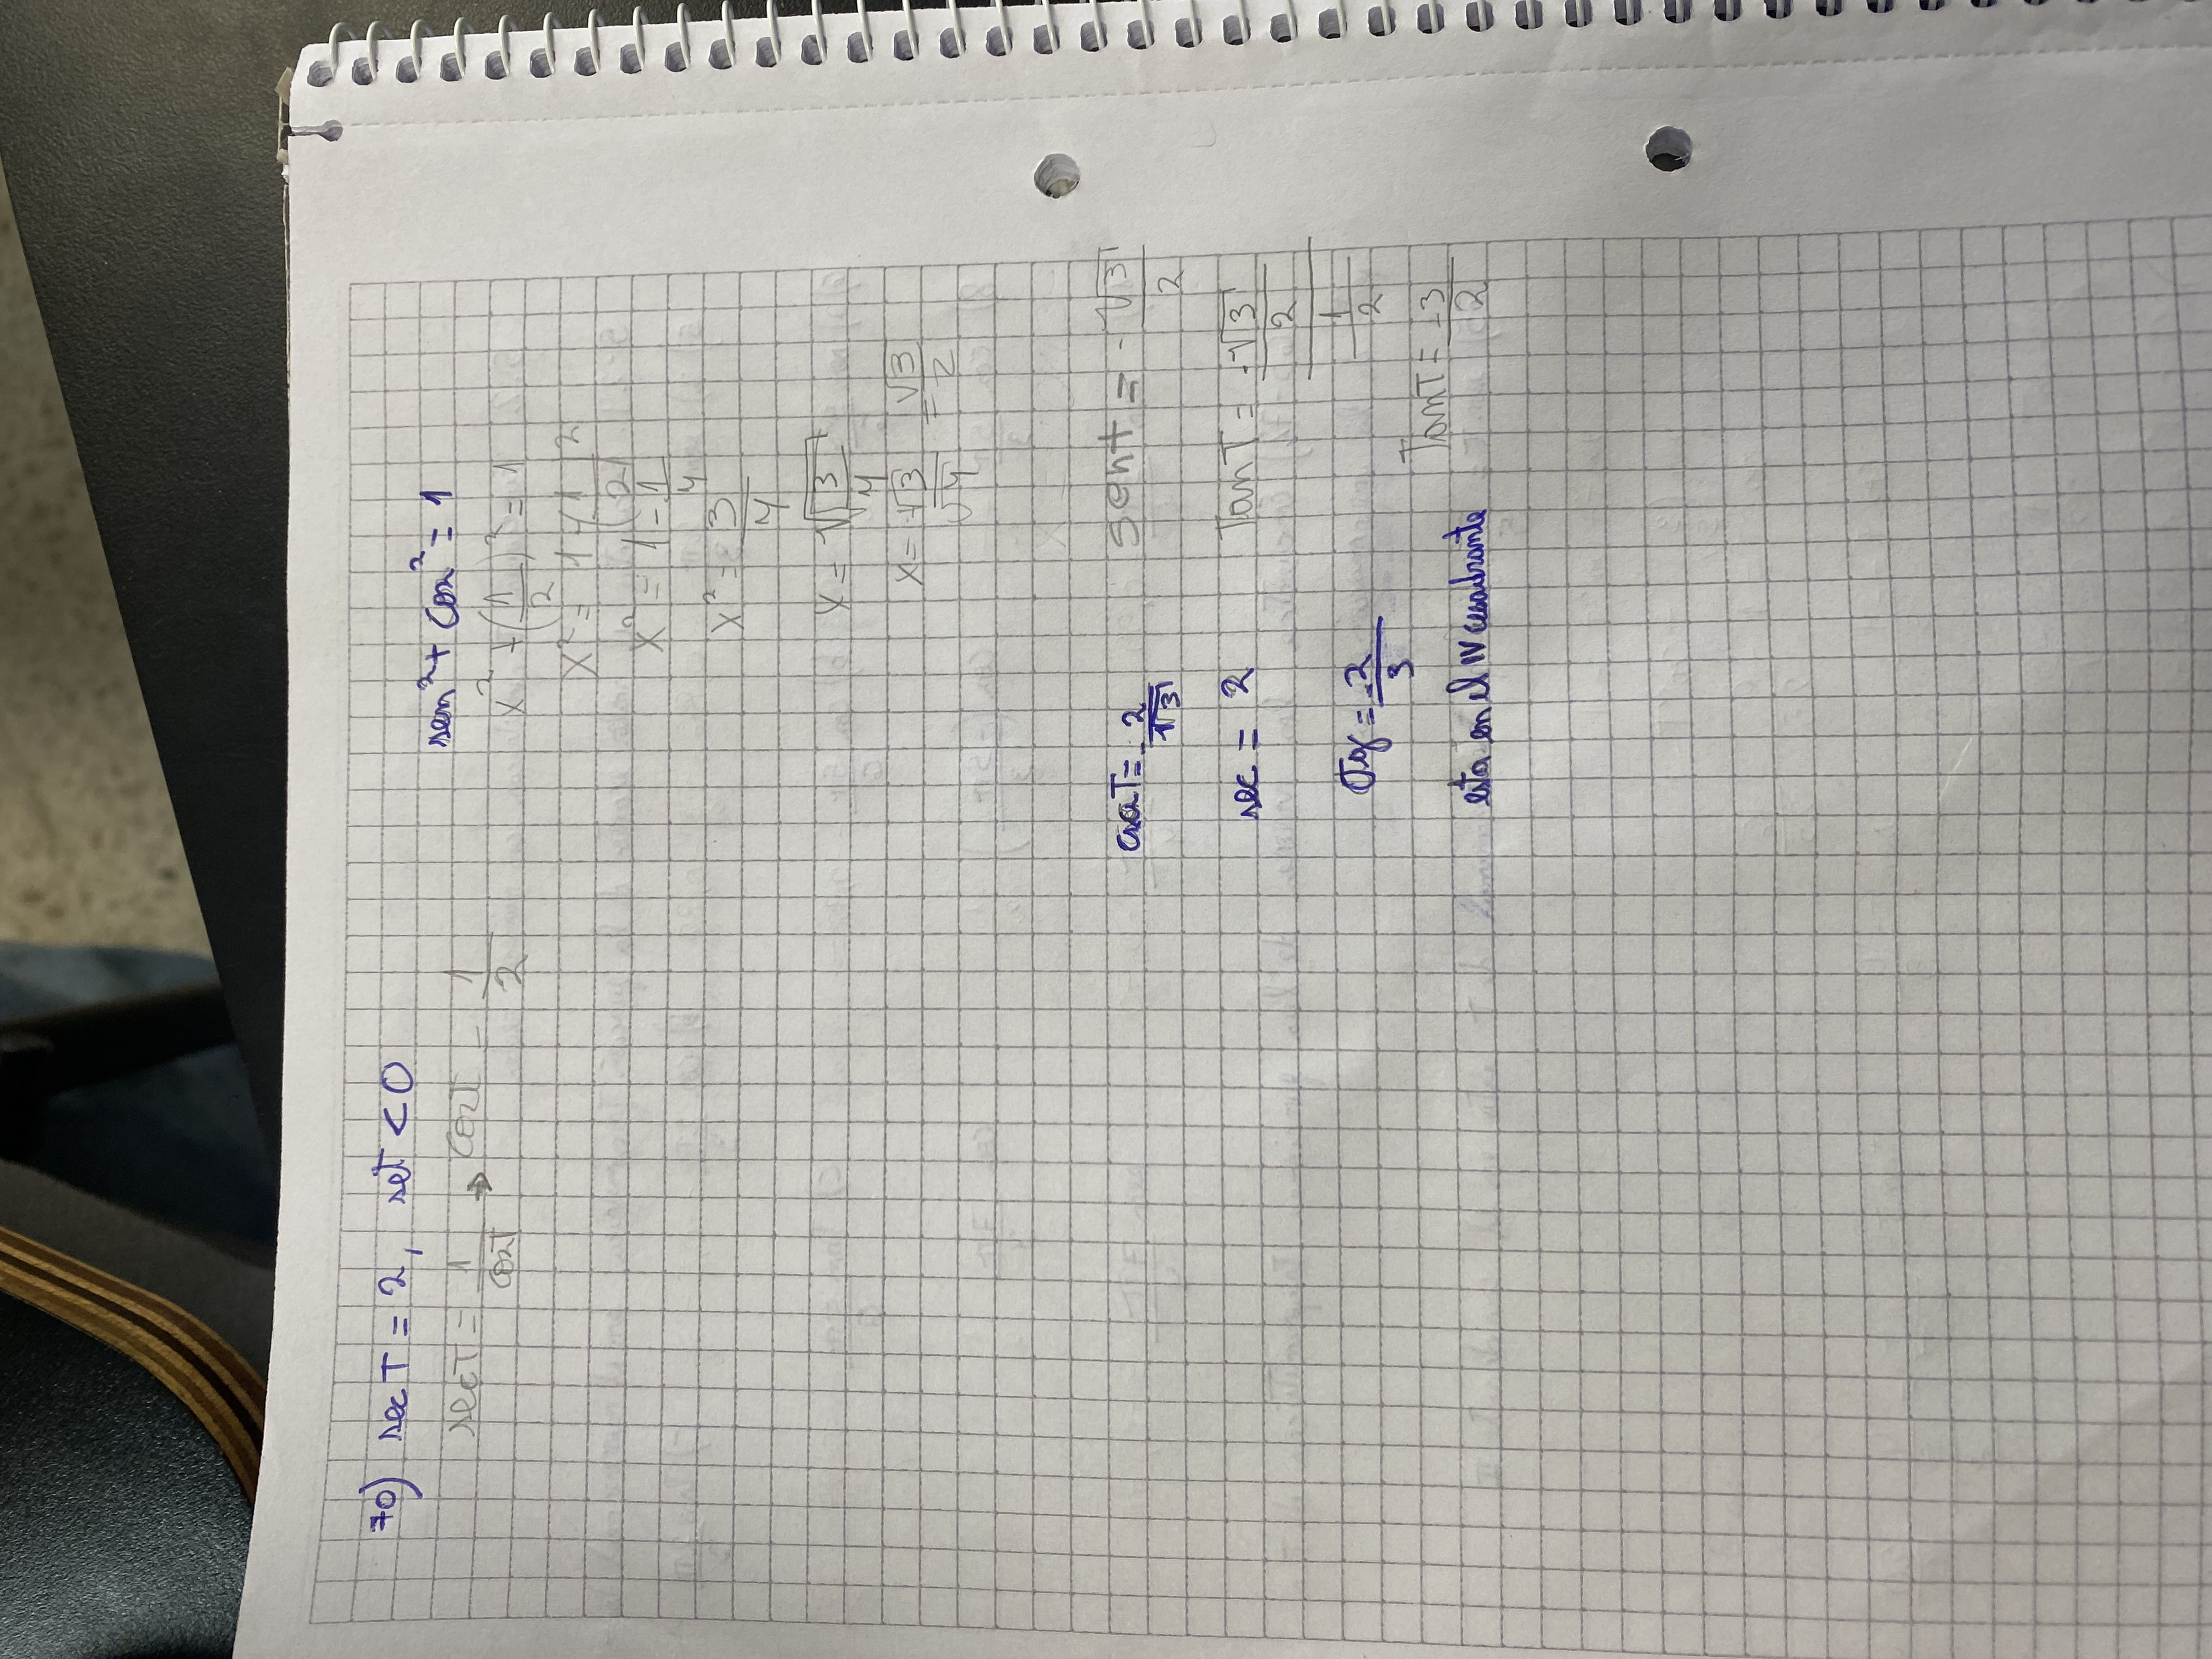 70) sec T = 2, set < 0
sec T = 1/cosT → cosT = 1/2
sen² + cos² = 1
x² + (1/2)² = 1
x² = 1 - (1/2)²
x² = 1 - 1/4
x² = 3/4
x = √3/4
x = √3/√4 = √3/2
sent = -√3/2
TanT = -√3/2 / 1/2
TanT = -3/2
cscT = -2/√3
sec = 2
ctg = -2/3
esta en el IV cuadrante